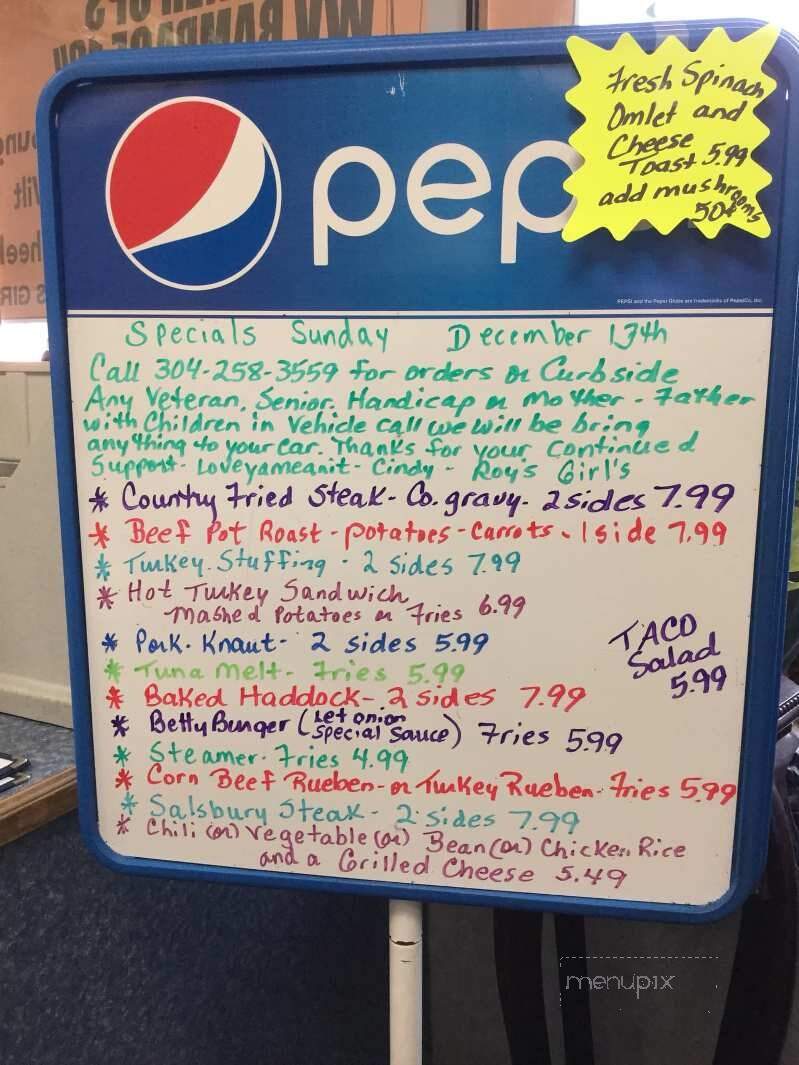 Fresh Spinach
Omlet and
Cheese
Toast 5.99
add mushrooms
50¢
pep
PEPSI and the Pepsi Globe are trademarks of PepsiCo, Inc.
Specials Sunday December 13th
Call 304-258-3559 for orders or Curbside
Any Veteran, Senior, Handicap or Mother - Father
with Children in Vehicle call we will be bring
anything to your car. Thanks for your continued
Support - Loveyameanit - Cindy - Roy's Girl's
* Country Fried Steak - Co. gravy - 2 sides 7.99
* Beef Pot Roast - potatoes - Carrots - 1 side 7.99
* Turkey. Stuffing - 2 sides 7.99
* Hot Turkey Sandwich
Mashed Potatoes or Fries 6.99
* Pork. Knaut - 2 sides 5.99
* Tuna Melt - Fries 5.99
TACO
Salad
5.99
* Baked Haddock - 2 sides 7.99
* Betty Burger (Let onion special Sauce) Fries 5.99
* Steamer - Fries 4.99
* Corn Beef Rueben - or Turkey Rueben - Fries 5.99
* Salsbury Steak - 2 sides 7.99
* Chili (or) Vegetable (or) Bean (or) Chicken Rice
and a Grilled Cheese 5.49
menupix